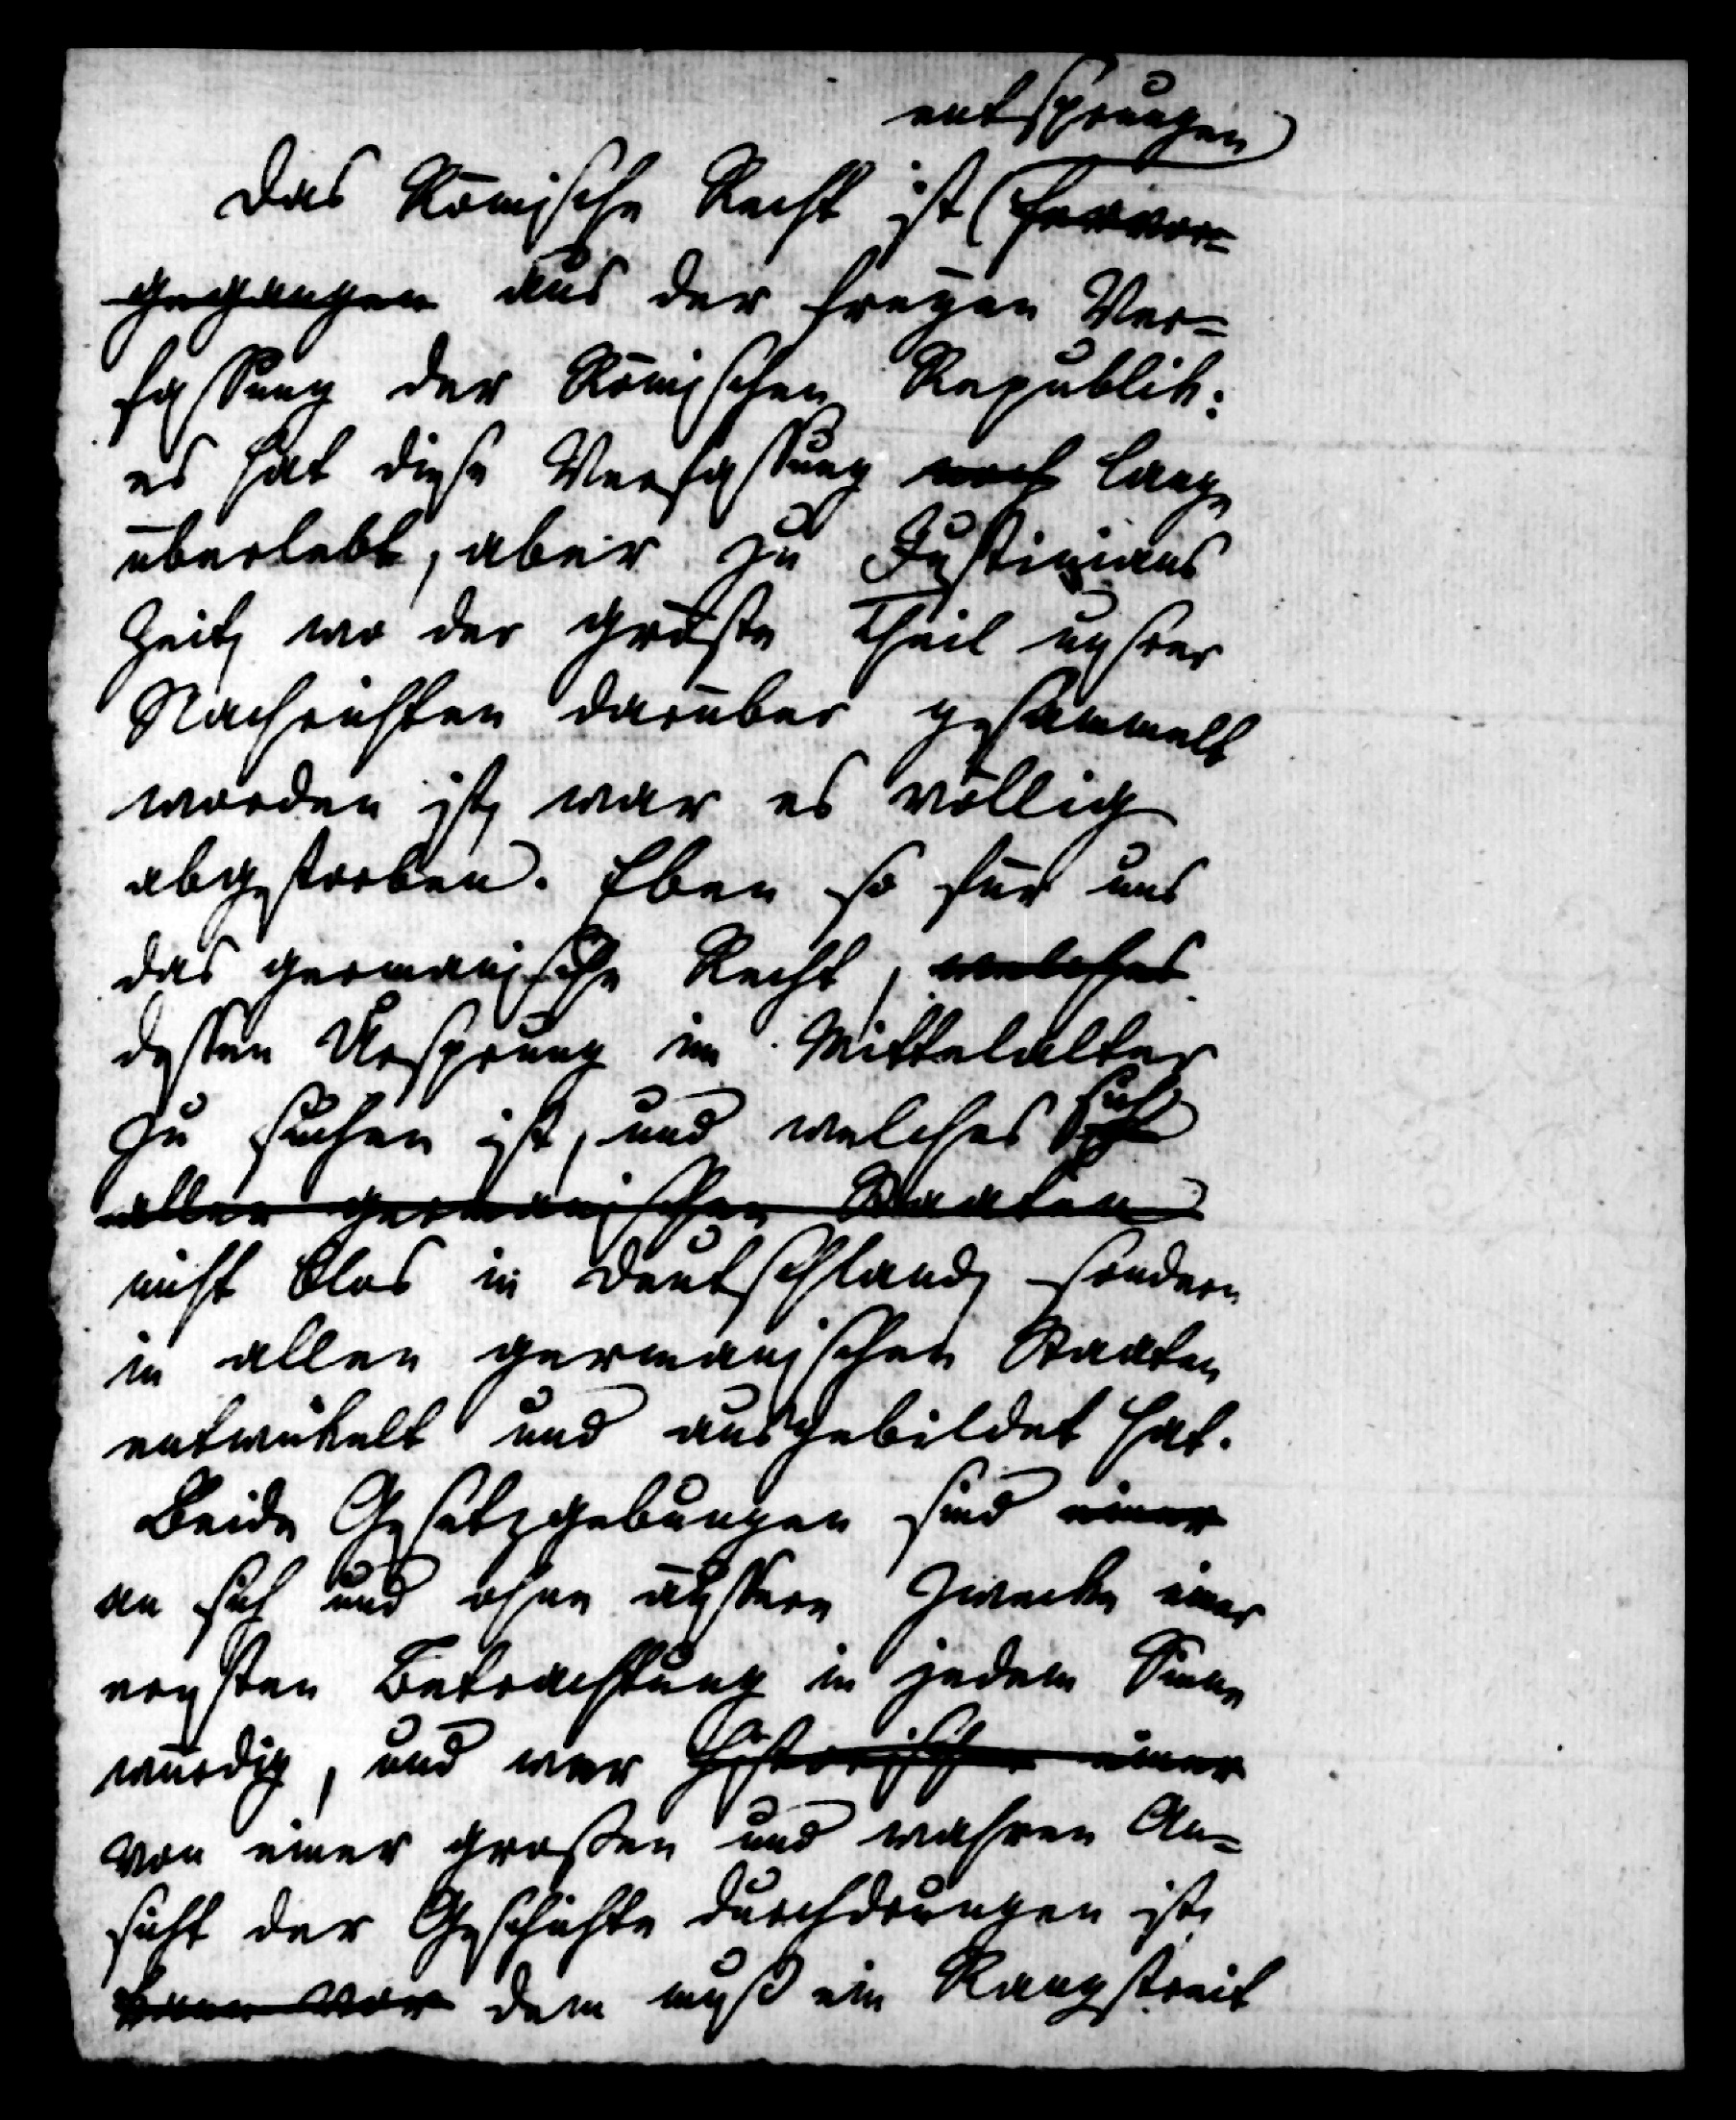 entsprungen
Das Römische Recht ist (hervor=
gegangen aus der freyen Ver=
fassung der Römischen Republik:
es hat diese Verfassung noch lange
überlebt, aber zu Justinians
Zeit, wo der gröste Theil unsrer
Nachrichten darüber gesammelt
worden ist, war es völlig
abgestorben. Eben so für uns
das germanische Recht, welches
dessen Ursprung im Mittelalter
zu suchen ist, und welches sich
aller germanischen Staaten
nicht blos in Deutschland, sondern
in allen germanischen Staaten
entwickelt und ausgebildet hat.
Beide Gesetzgebungen sind einer
an sich und ohne äussere Zwecke einer
ernsten Betrachtung in jedem Sinne
würdig, und wer historischer einer
von einer großen und wahren An=
sicht der Geschichte durchdrungen ist,
dem muß ein Rangstreit